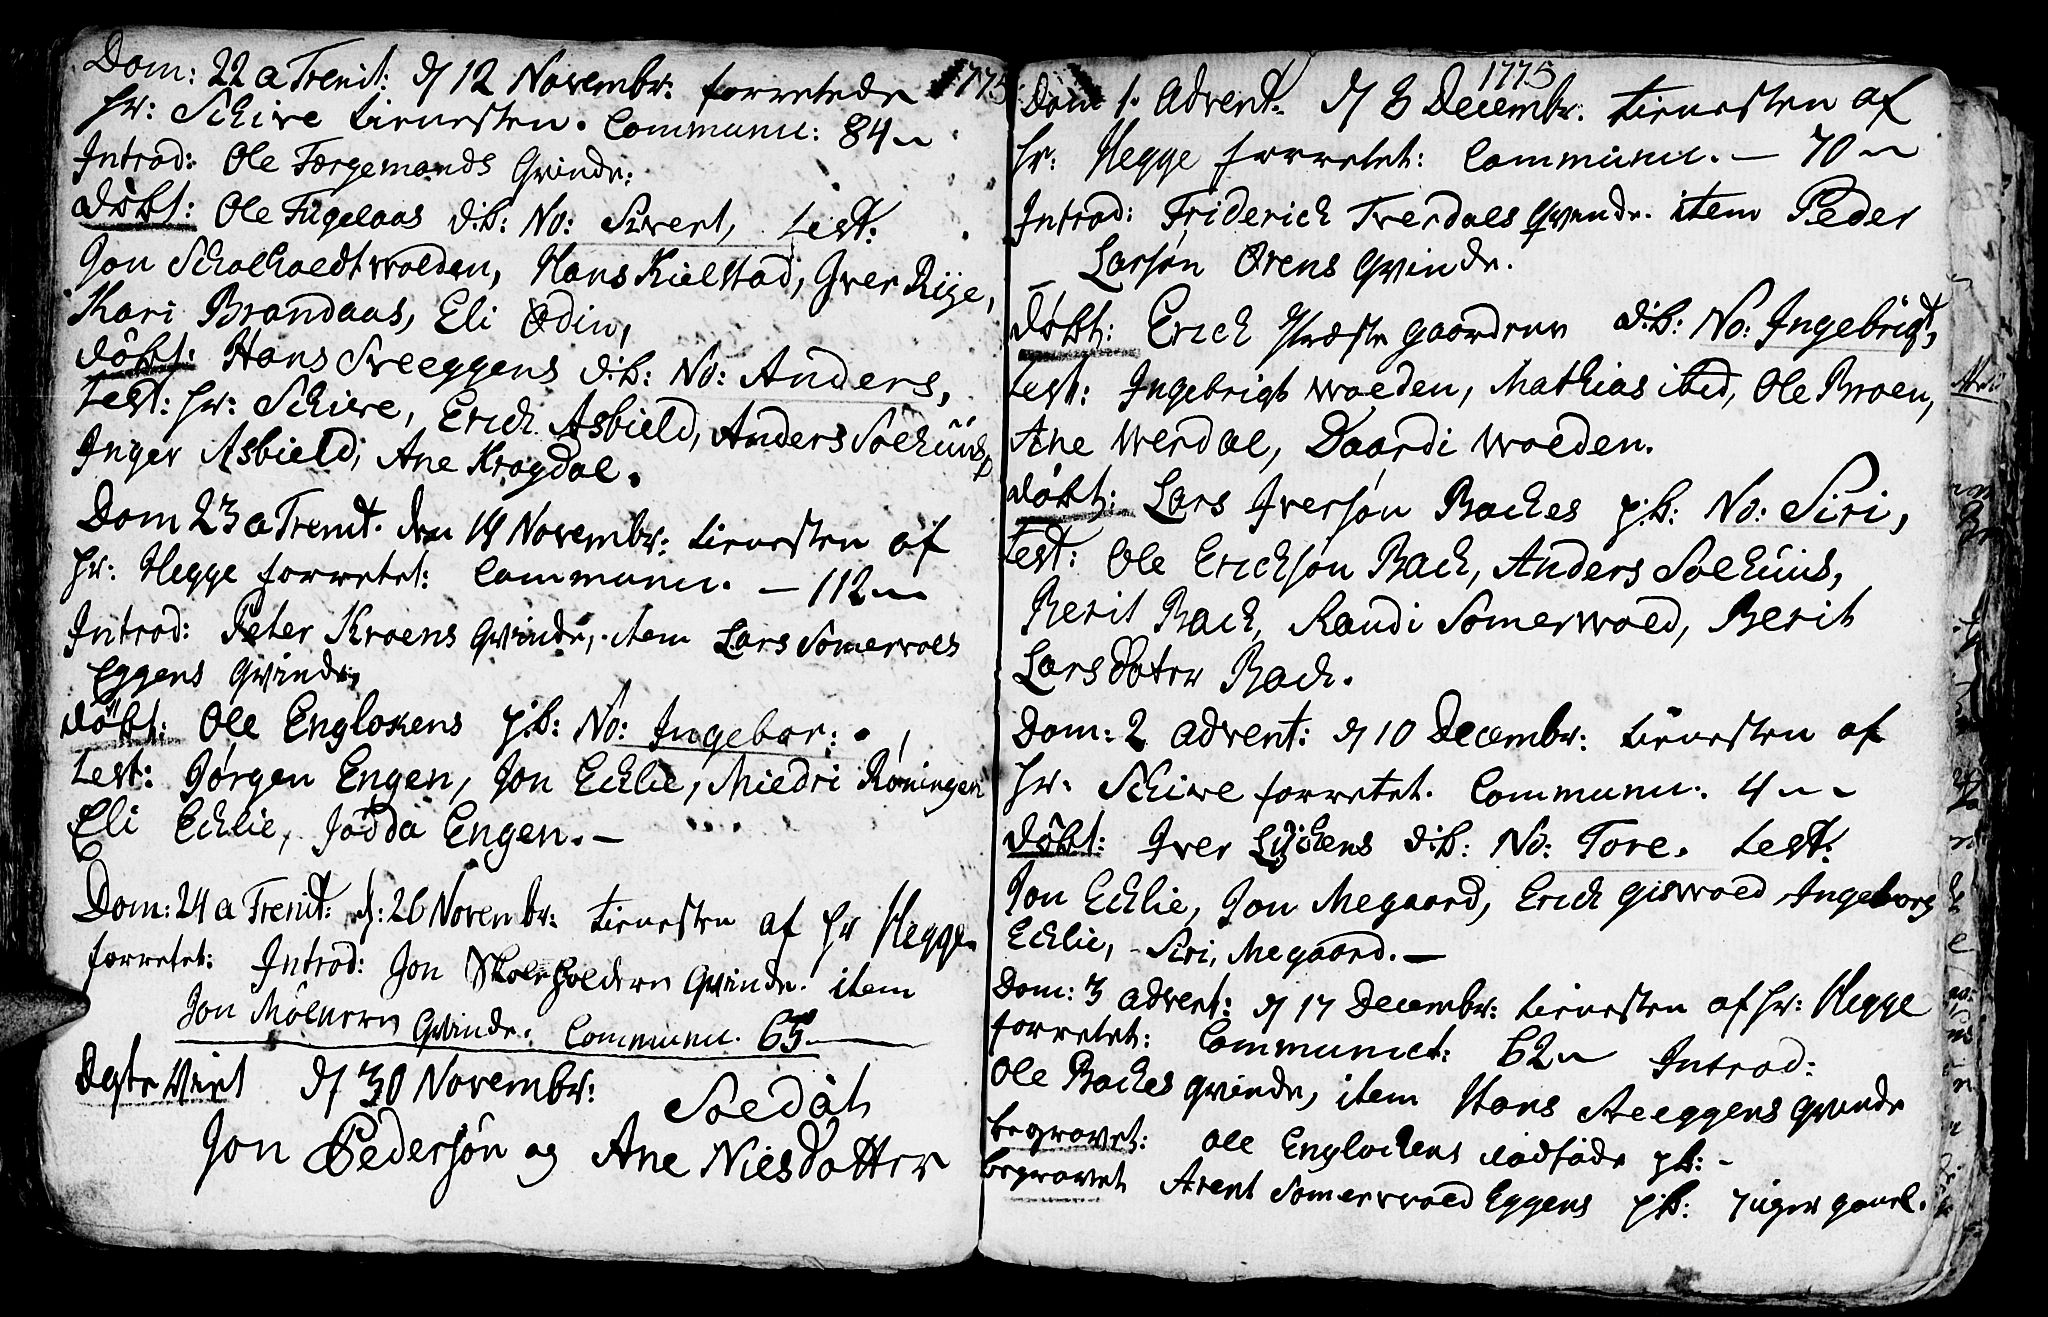 1775
Dom: 22 a Trenit: d 12 Novembr: forretede
hr: Schive tienesten. Communic: 84
Introd: Ole Færgemands Qvinde.
døbt: Ole Fugelaas d:b: No: Sivert, test:
Jon Scholholdtwolden, Hans Kielstad, Iver Rise,
Kari Brandaas, Eli Ødin,
døbt: Hans Sveeggens d:b: No: Anders,
test: hr: Schive, Erich Asbield, Anders Solhuus,
Inger Asbield, Ane Krogdal.
Dom 23 a Trenit. den 19 Novembr: tienesten af
hr: Hegge forretet: Communic. — 112
Introd: Peter Kroens Qvinde, item Lars Somervols
Eggens Qvinde,
døbt: Ole Englokens p:b: No: Ingebor:
test: Jørgen Engen, Jon Echlie, Miedri Røningen
Eli Echlie, Jødda Engen. —
Dom: 24 a Trenit: d: 26 Novembr: tienesten af hr Hegge
forretet: Introd: Jon Skoleholdern Qvinde. item
Jon Mølnern Qvinde. Communic. 65
Ægte Viet d 30 Novembr: Soldat
Jon Pedersøn og Ane Nielsdotter
1775
Dom 1. Advent. d 3 Decembr: tienesten af
hr: Hegge forretet: Communic. — 70
Introd: Friderich Tverdals Qvinde. item Peder
Larsøn Ørens Qvinde.
døbt: Erich Præste gaordenn d:b: No: Ingebrigt,
test: Ingebrigt wolden, Mathias ibid, Ole Broen,
Ane Werdal, Daardi wolden.
døbt: Lars Iversøn Baches p:b: No: Siri,
test: Ole Erichsøn Bach, Anders Solhuus,
Berit Bach, Randi Somerwold, Berit
Larsdoter Bach.
Dom: 2 advent: d 10 Decembr: tienesten af
hr. Schive forretet. Communic. 4
døbt: Iver Lychens d:b: No: Tore. test:
Jon Echlie, Jon Megaard, Erich giswold, Ingeborg
Echlie, Siri Megaard. —
Dom: 3 advent: d 17 Decembr: tienesten af hr: Hegge
forretet: Communict: 62 Introd:
Ole Baches qvinde, item Hans Sveeggens qvinde
begravet: Ole Englochens dødføde p:b: -
begravet Arent Somerwold Eggens p:b: 7 uger gaml.